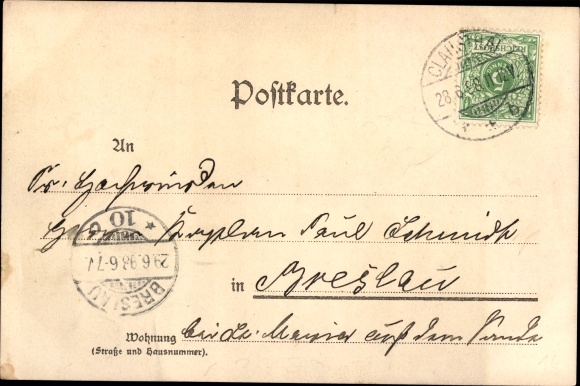 CLAUSTHAL
28.6.98
REICHSPOST
5
Postkarte.
An
Sr. Hochwürden
Herrn Kaplan Paul Schmidt
BRESLAU
29.6.98 6-7
10
in Breslau
Wohnung bei St. auf dem Sande
(Straße und Hausnummer).